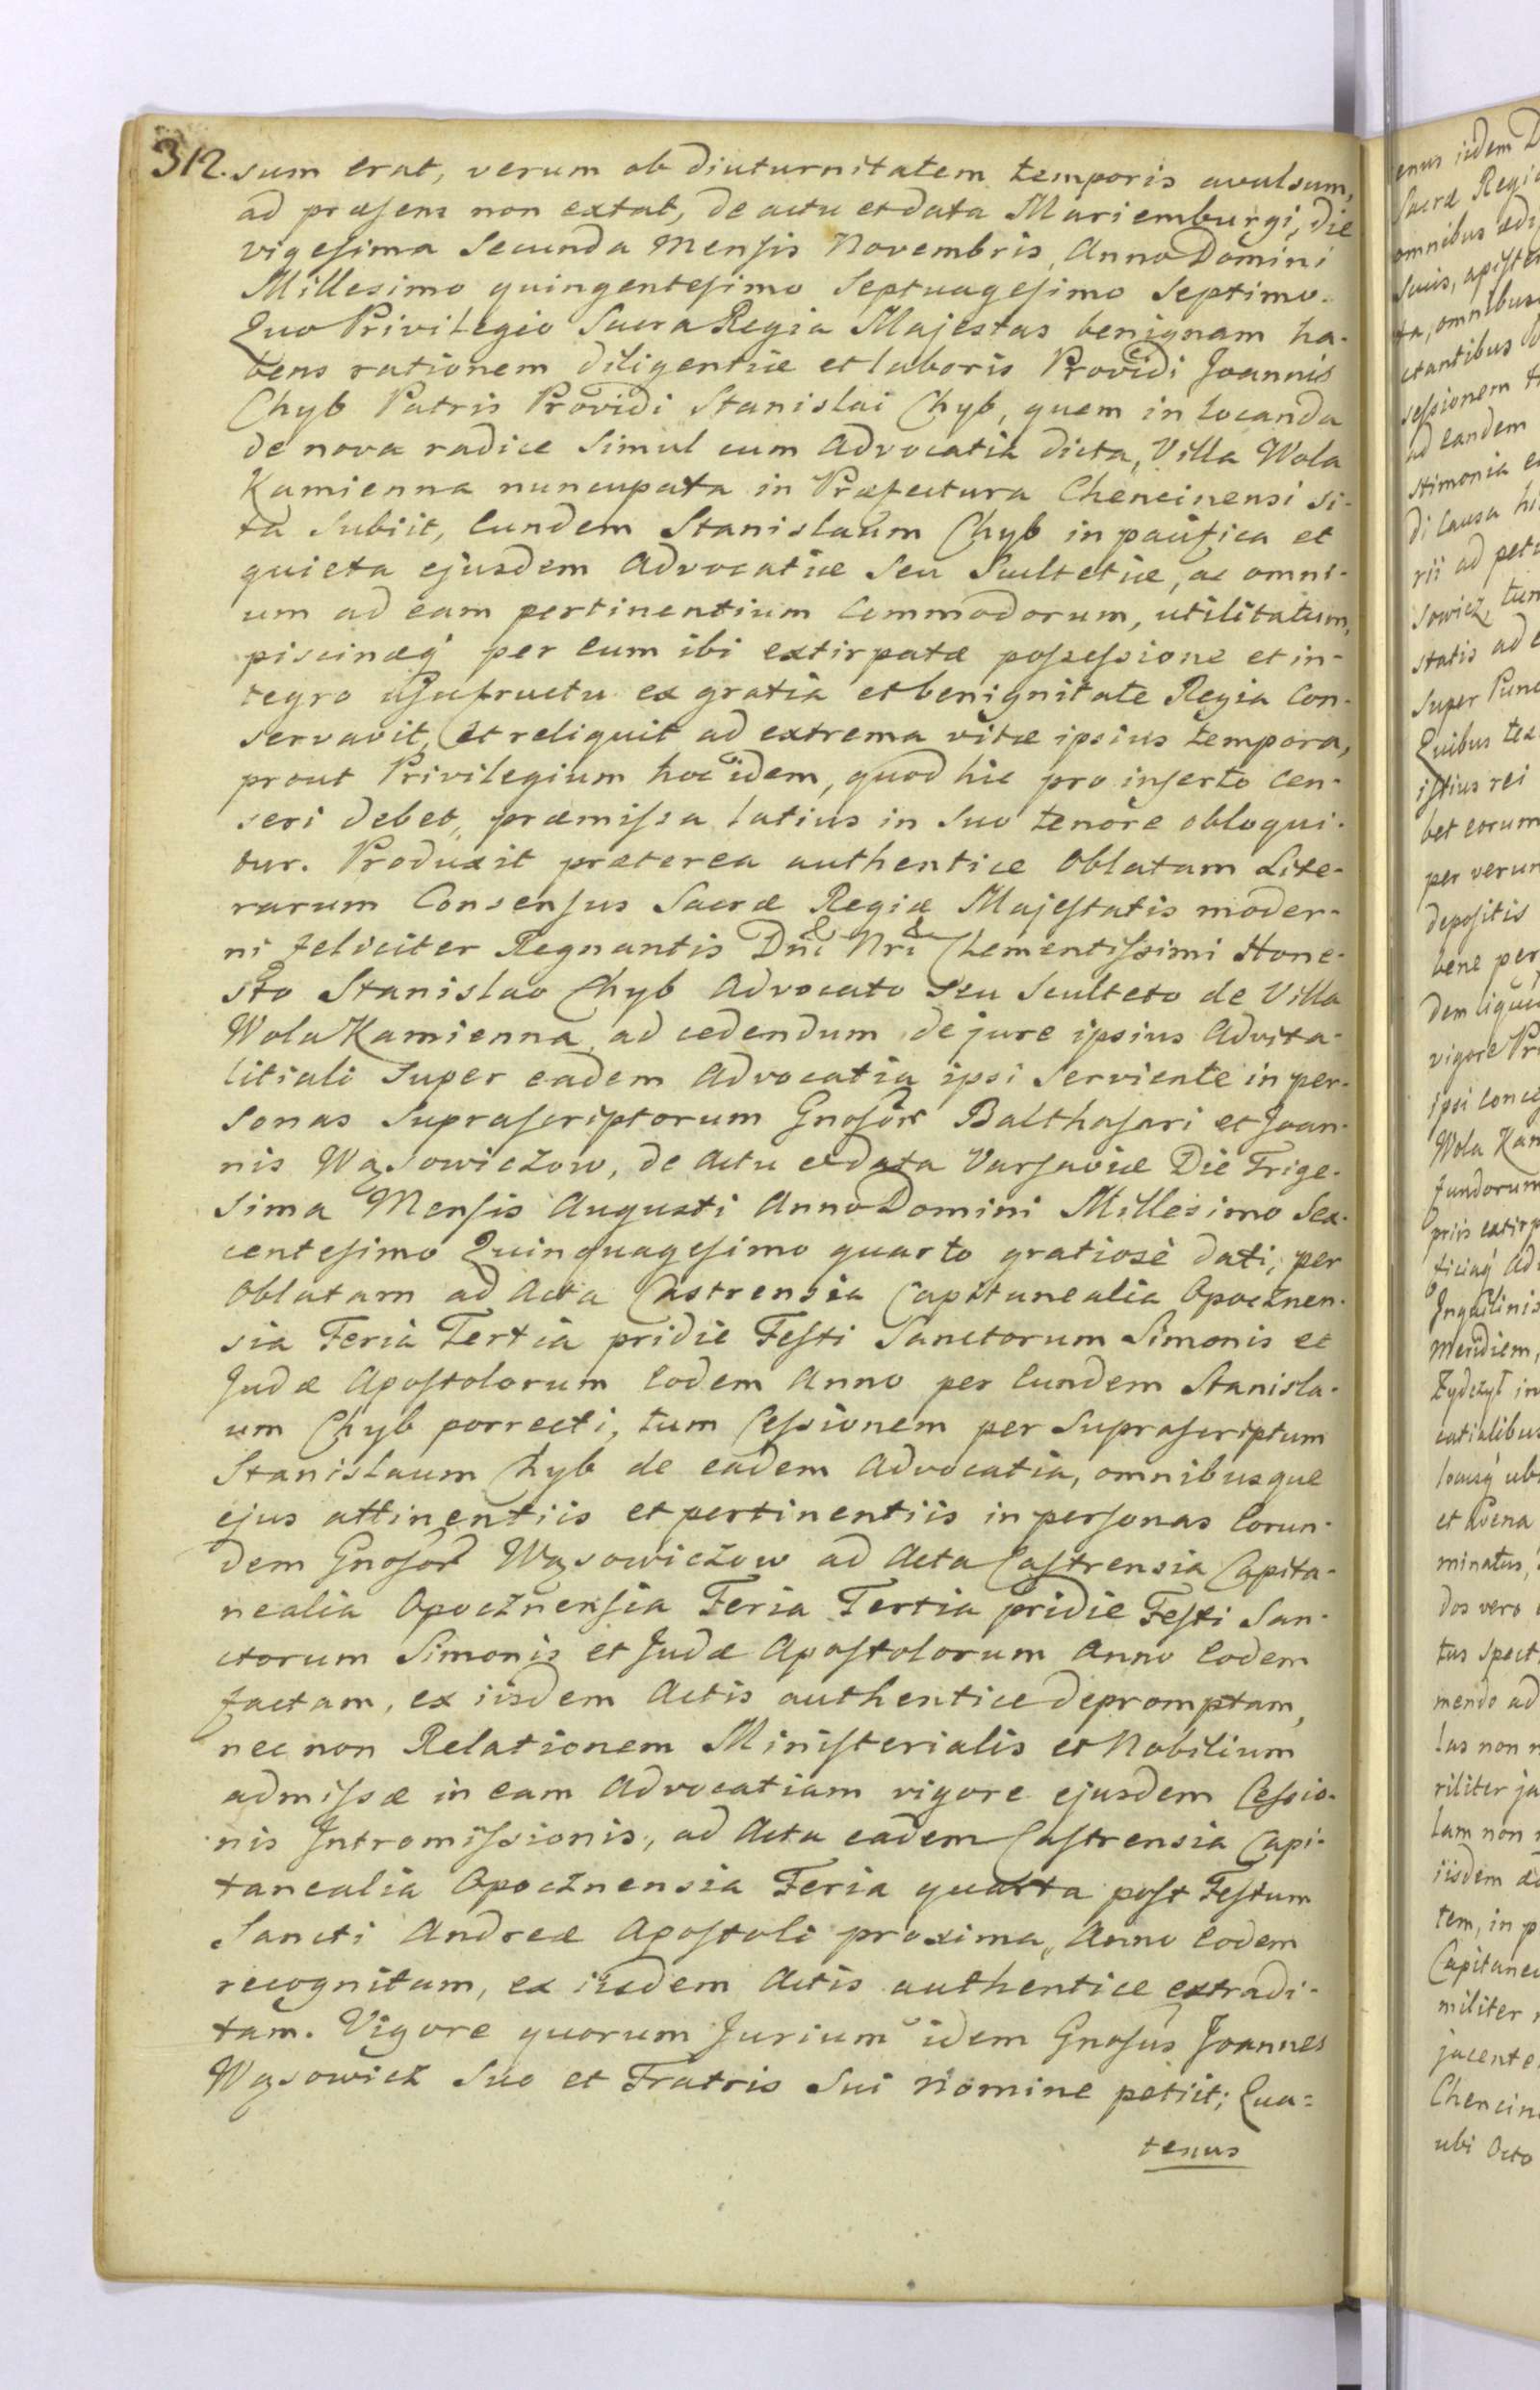 312. sum erat, verum ob diuturnitatem temporis avulsum,
ad præsens non extat, de actu et data Mariemburgi, die
vigesima Secunda Mensis Novembris, Anno Domini
Millesimo quingentesimo Septuagesimo Septimo.
Quo Privilegio Sacra Regia Majestas benignam ha-
bens rationem diligentiæ et laboris Providi Joannis
Chyb Patris Providi Stanislai Chyb, quem in locanda
de nova radice Simul cum Advocatia dicta, Villa Wola
Kamienna nuncupata in Præfectura Chencinensi si-
ta Subiit, Eundem Stanislaum Chyb in pacifica et
quieta ejusdem Advocatiæ Seu Scultetiæ, ac omni-
um ad eam pertinentium Commodorum, utilitatum,
piscinæq́ per Eum ibi extirpatæ possessione et in-
tegro usufructu ex gratia et benignitate Regia Con-
servavit, et reliquit ad extrema vitæ ipsius tempora,
prout Privilegium hoc idem, quod hic pro inserto Cen-
seri debet, præmissa latius in Suo tenore obloqui-
tur. Produxit præterea authentice Oblatam Lite-
rarum Consensus Sacræ Regiæ Majestatis moder-
ni feliciter Regnantis Dni Nri Clementissimi Hone-
sto Stanislao Chyb Advocato Seu Sculteto de Villa
Wola Kamienna, ad cedendum de jure ipsius Advita-
litiali Super eadem Advocatia ipsi Serviente in per-
sonas Suprascriptorum Gnosor Balthasari et Joan-
nis Wąsowiczow, de Actu et data Varsaviæ Die Trige-
sima Mensis Augusti Anno Domini Millesimo Sex-
centesimo Quinquagesimo quarto gratiosè dati, per
Oblatam ad Acta Castrensia Capitanealia Opocznen-
sia Feria Tertia pridie Festi Sanctorum Simonis et
Judæ Apostolorum Eodem Anno per Eundem Stanisla-
um Chyb porrecti, tum Cessionem per Suprascriptum
Stanislaum Chyb de eadem Advocatia, omnibusque
ejus attinentiis et pertinentiis in personas Eorun-
dem Gnosor Wąsowiczow ad Acta Castrensia Capita-
nealia Opocznensia Feria Tertia pridie Festi San-
ctorum Simonis et Judæ Apostolorum Anno Eodem
factam, ex iisdem Actis authentice depromptam,
nec non Relationem Ministerialis et Nobilium
admissæ in eam Advocatiam vigore ejusdem Cessio-
nis Intromissionis, ad Acta eadem Castrensia Capi-
tanealia Opocznensia Feria quarta post Festum
Sancti Andreæ Apostoli proxima, Anno Eodem
recognitam, ex iisdem Actis authentice extradi-
tam. Vigore quorum Jurium idem Gnosus Joannes
Wąsowicz Suo et Fratris Sui Nomine petiit; Qua=
tenus
enus iidem
Sacræ
omnibus
Suis,
ta, omnibus
ctantibus
sessionem
ad eandem
stimonia
di Causa
rii ad
sowicz,
statis ad
Super
Quibus
istius rei
bet eorum
per
depositis
bene
dem
vigore
ipsi
Wola
fundorum
Inquilinis
meridiem,
et avena
minatus,
dos vero
tus
mendo ad
las non
riliter
lam non
iisdem
tem, in
militer
ubi Octo